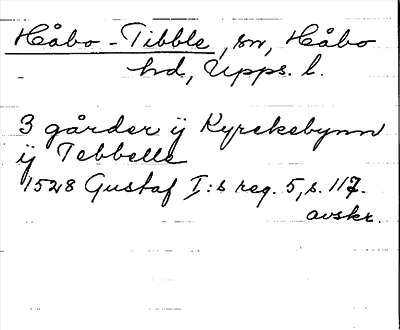 Håbo-Tibble, sn, Håbo
hd, Upps. l.
3 gårder ij Kyrckebynn
ij Tebbelle
1528 Gustaf I:s reg. 5, s. 117.
avskr.